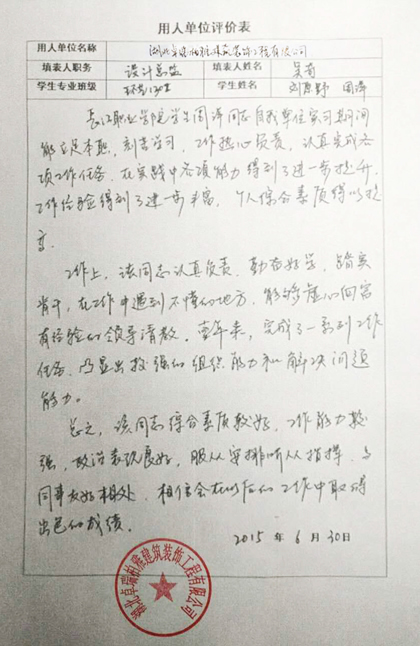 用人单位评价表
用人单位名称 湖北卓瑞柏雅建筑装饰工程有限公司
填表人职务 设计总监 填表人姓名 吴
学生专业班级 环艺 刘原野 周萍
长江职业学院学生周萍同志自我单位实习期间
能立足本职，刻苦学习，工作热心负责，认真完成各
项工作任务，在实践中各项能力得到了进一步提升，
工作经验得到了进一步丰富，个人综合素质得以提
高。
工作上，该同志认真负责，勤奋好学，踏实
肯干，在工作中遇到不懂的地方，能够虚心向富
有经验的领导请教，年来，完成了一系列工作
任务，凸显出较强的组织能力和解决问题
能力。
总之，该同志综合素质较好，工作能力较
强，政治表现良好，服从安排听从指挥，与
同事友好相处，相信会在以后的工作中取得
出色的成绩。
2015 年 6 月 30日
湖北卓瑞柏雅建筑装饰工程有限公司